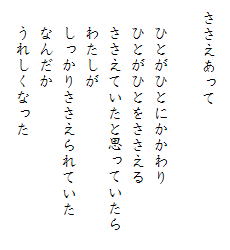 ささえあって
ひとがひとにかかわり
ひとがひとをささえる
ささえていたと思っていたら
わたしが
しっかりささえられていた
なんだか
うれしくなった